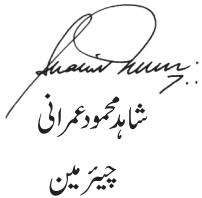 شاہد محمود عمرانی
چیئرمین